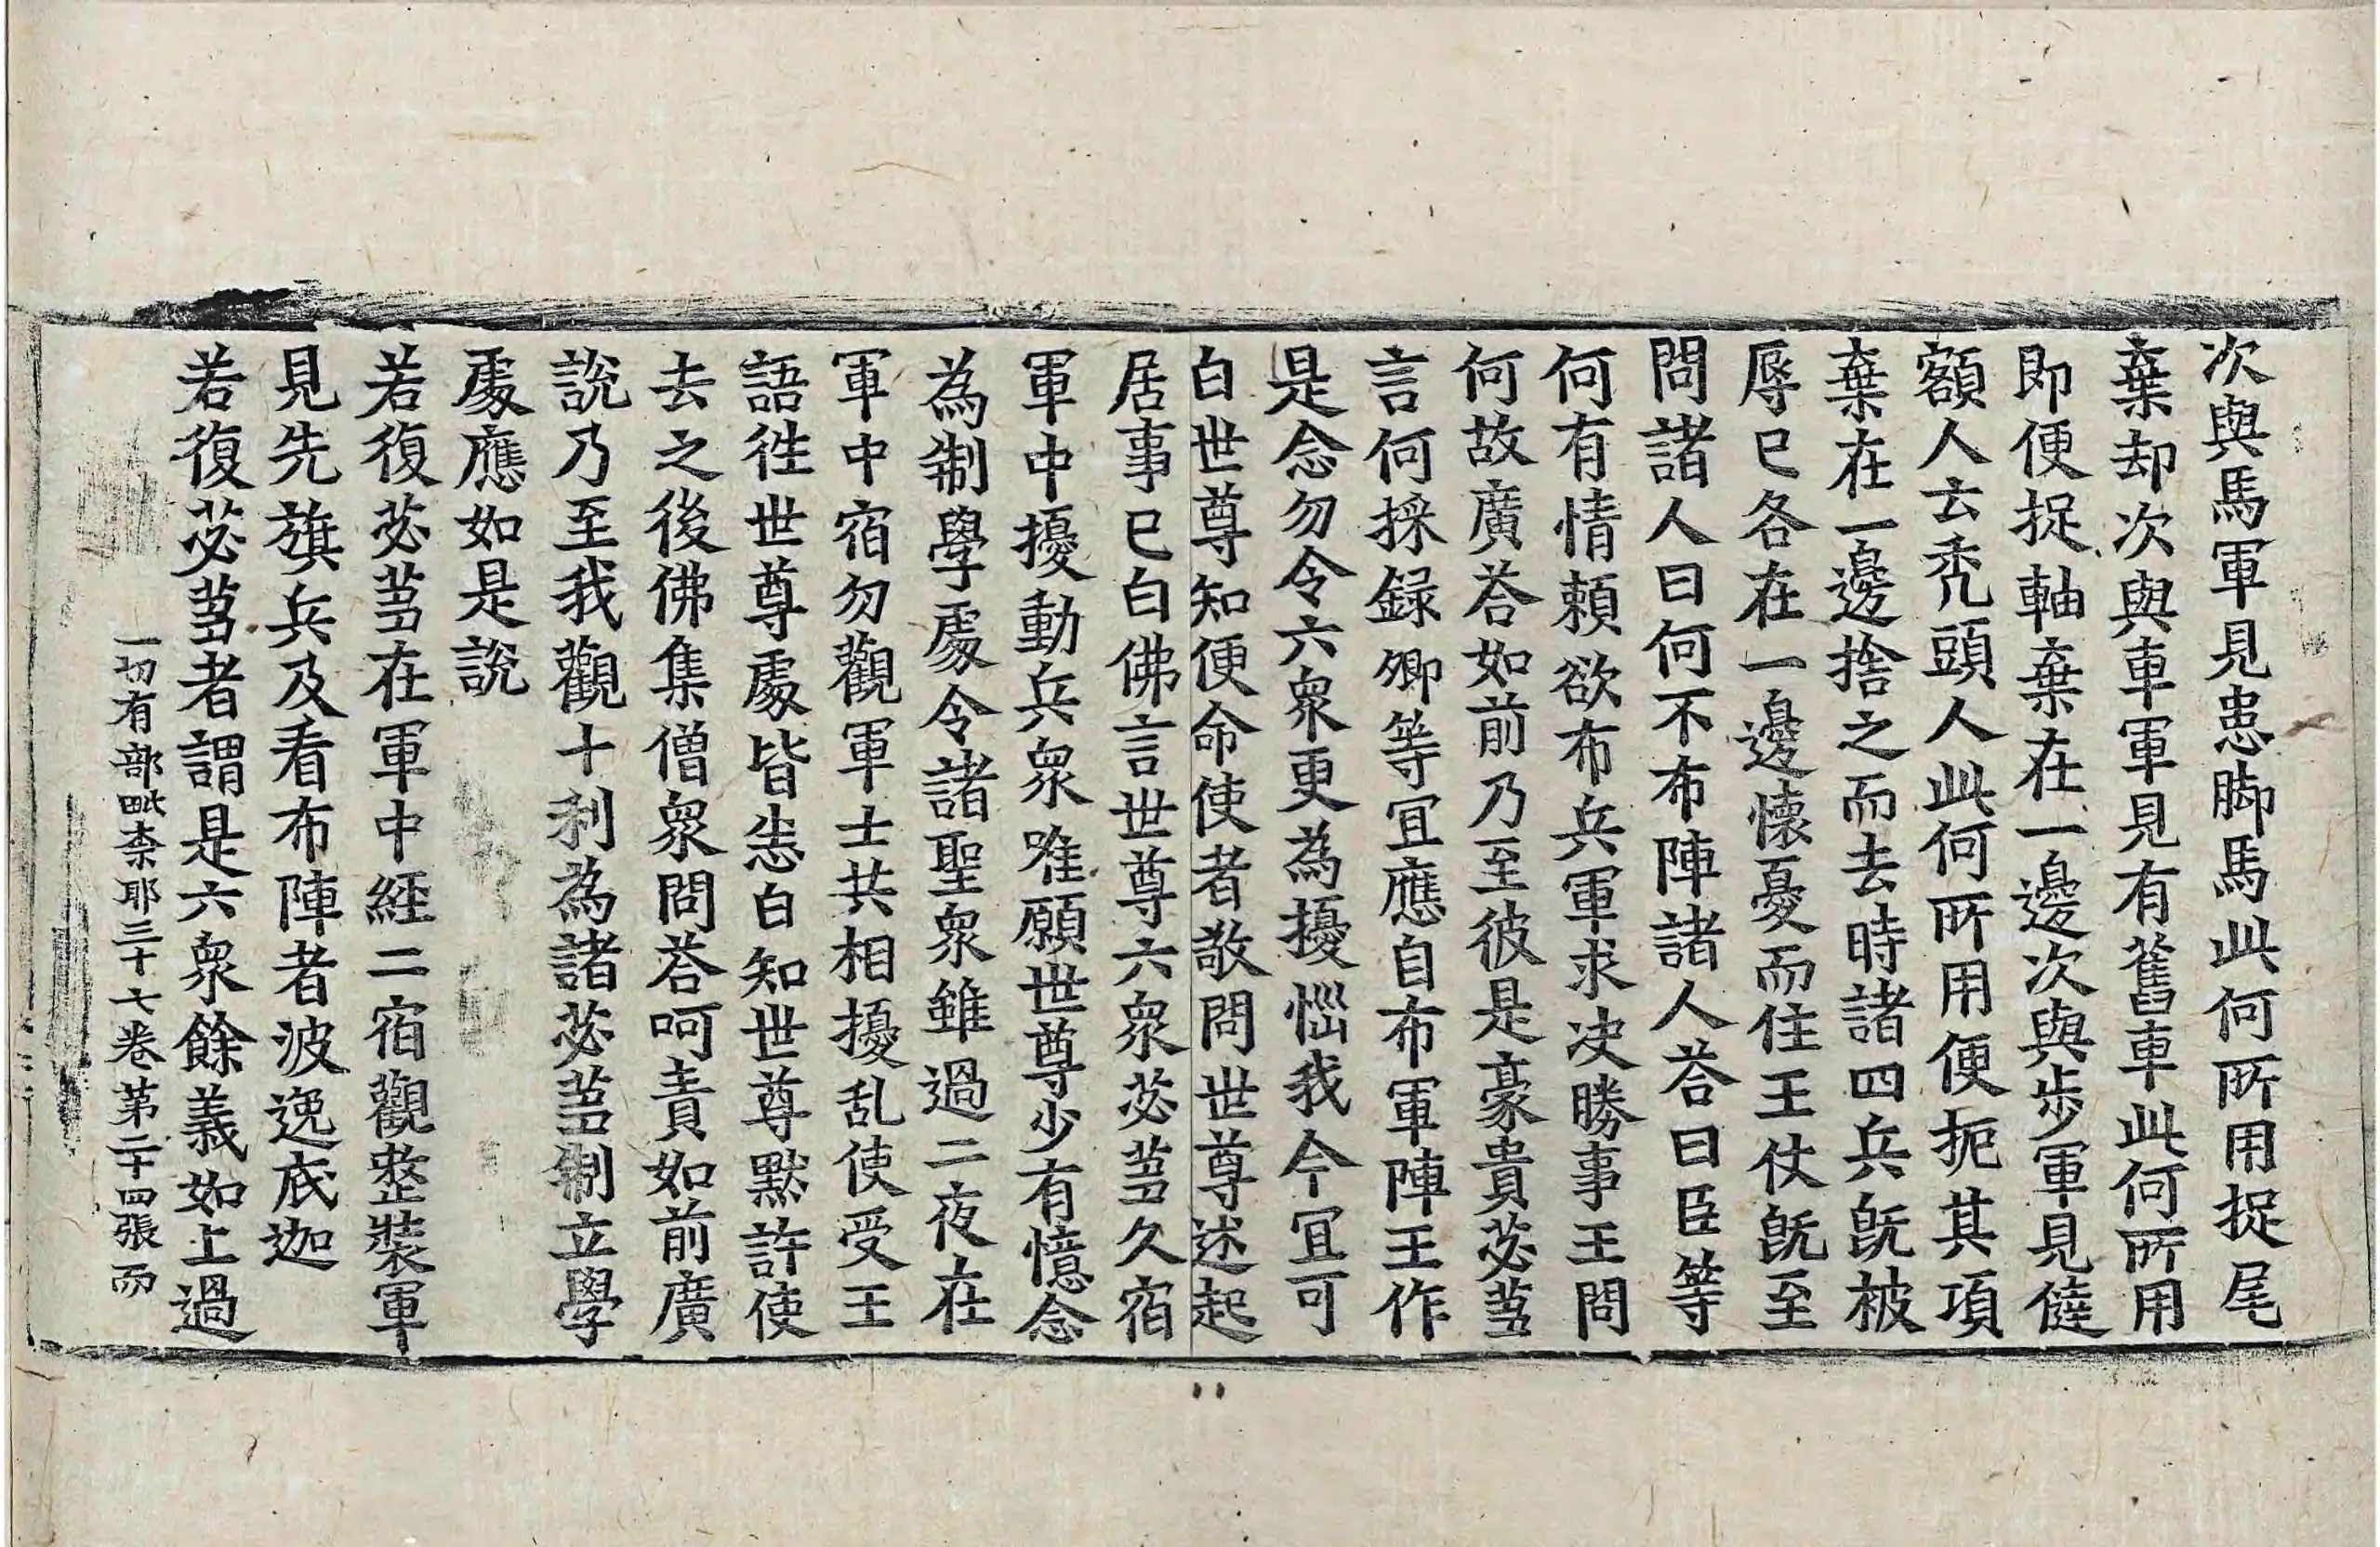 次與馬軍見患脚馬此何所用捉尾
棄却次與車軍見有舊車此何所用
即便捉軸棄在一邊次與步軍見㒓
額人云禿頭人此何所用便扼其項
棄在一邊捨之而去時諸四兵旣被
辱已各在一邊懷憂而住王仗旣至
問諸人曰何不布陣諸人荅曰臣等
何有情頼欲布兵軍求决勝事王問
何故廣荅如前乃至彼是豪貴苾芻
言何採録卿等冝應自布軍陣王作
是念勿令六衆更為擾惱我今冝可
白世尊知便命使者敬問世尊述起
居事已白佛言世尊六衆苾芻久宿
軍中擾動兵衆唯願世尊少有憶念
為制學處令諸聖衆雖過二夜在
軍中宿勿觀軍士共相擾乱使受王
語徃世尊處皆悉白知世尊默許使
去之後佛集僧衆問荅呵責如前廣
說乃至我觀十利為諸苾芻制立學
處應如是說
若復苾芻在軍中経二宿觀整裝軍
見先旗兵及看布陣者波逸底迦
若復苾芻者謂是六衆餘義如上過
一切有部毗柰耶三十七卷第二十四張而